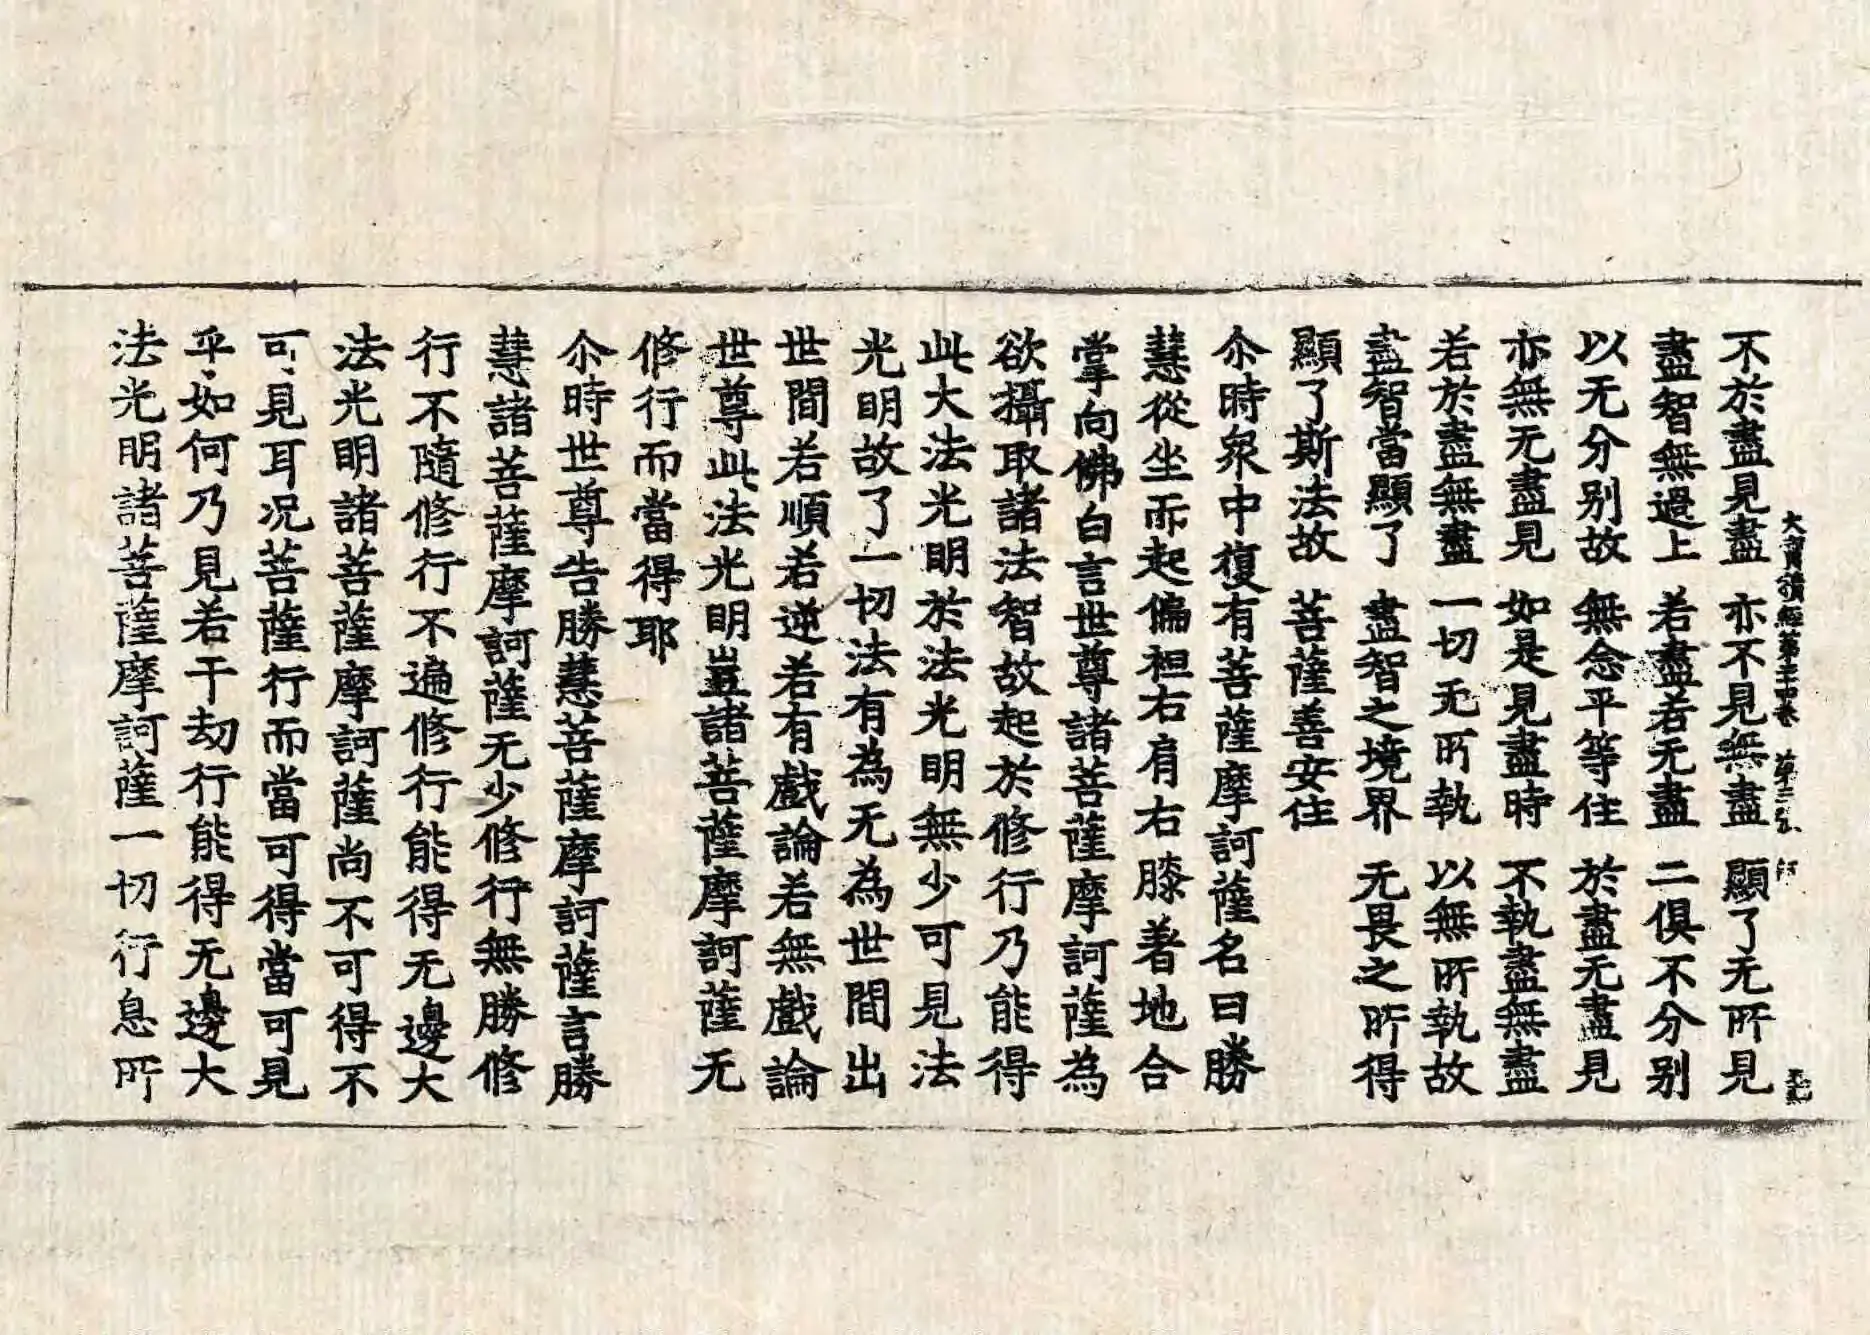 大寶積經第二十四卷 第二張 師
不於盡見盡 亦不見無盡 顯了无所見
盡智無過上 若盡若无盡 二俱不分别
以无分别故 無念平等住 於盡无盡見
亦無无盡見 如是見盡時 不執盡無盡
若於盡無盡 一切无所執 以無所執故
盡智當顯了 盡智之境界 无畏之所得
顯了斯法故 菩薩善安住
尒時衆中復有菩薩摩訶薩名曰勝
慧從坐而起偏袒右肩右膝著地合
掌向佛白言世尊諸菩薩摩訶薩為
欲攝取諸法智故起於修行乃能得
此大法光明於法光明無少可見法
光明故了一切法有為无為世間出
世間若順若逆若有戲論若無戲論
世尊此法光明豈諸菩薩摩訶薩无
修行而當得耶
尒時世尊告勝慧菩薩摩訶薩言勝
慧諸菩薩摩訶薩无少修行無勝修
行不隨修行不遍修行能得无邊大
法光明諸菩薩摩訶薩尚不可得不
可見耳况菩薩行而當可得當可見
乎如何乃見若干劫行能得无邊大
法光明諸菩薩摩訶薩一切行息所